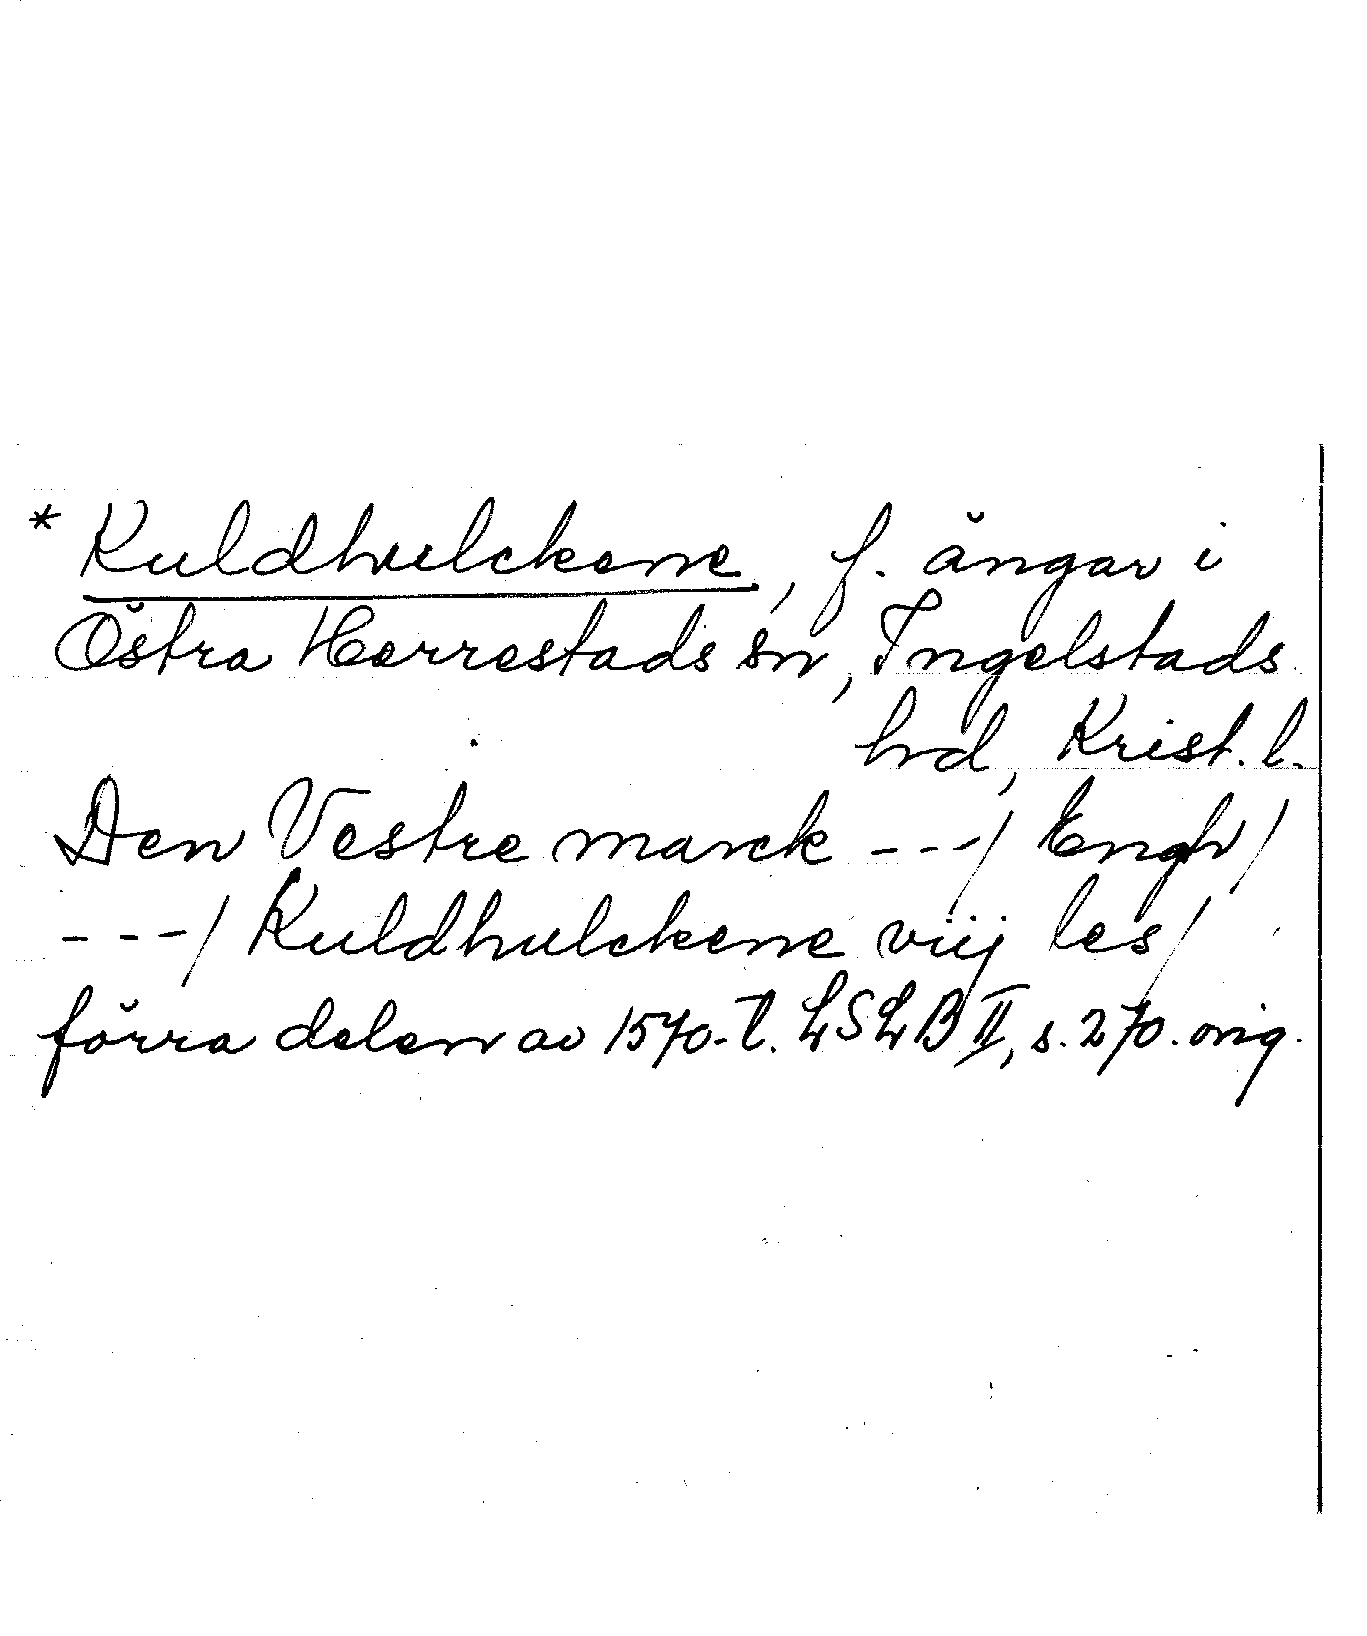 * Kuldhulckene, f. ängar i
Östra Herrestads sn, Ingelstads
hrd, Krist. l.
Den Vestre marck ---/ Engh/
---/ Kuldhulckene viij les/
förra delen av 1570-t. LSLB II, s. 270. orig.